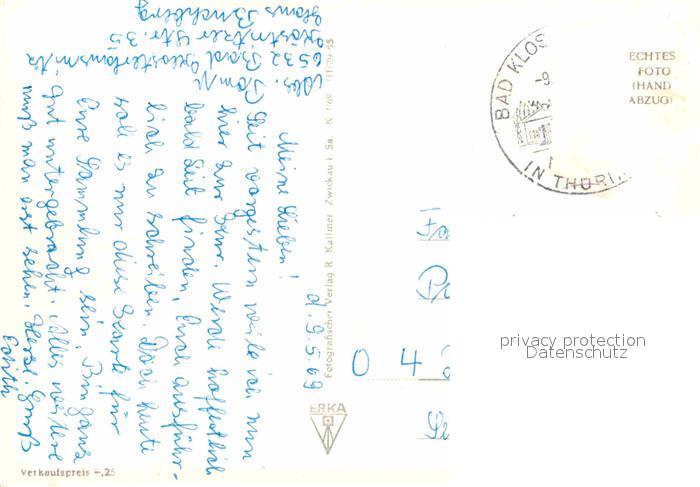 Abs. Damm
6532 Bad Klosterlausnitz
Köstritzer Str. 35
Haus Buchberg
d. 9.5.69
Meine Lieben!
Seit vorgestern weile ich nun
hier zur Kur. Werde hoffentlich
bald Zeit finden, Euch ausführ-
lich zu schreiben. Doch heute
soll es nur diese Karte für
Eure Sammlung sein. Bin ganz
gut untergebracht. Alles weitere
muß man erst sehen. Herzl. Gruß
Edith
Verkaufspreis -,25
Fotografischer Verlag R. Kallmer Zwickau i. Sa.
ERKA
BAD KLOS
-9.
IN THÜRI
ECHTES
FOTO
(HAND
ABZUG)
0 4
privacy protection
Datenschutz